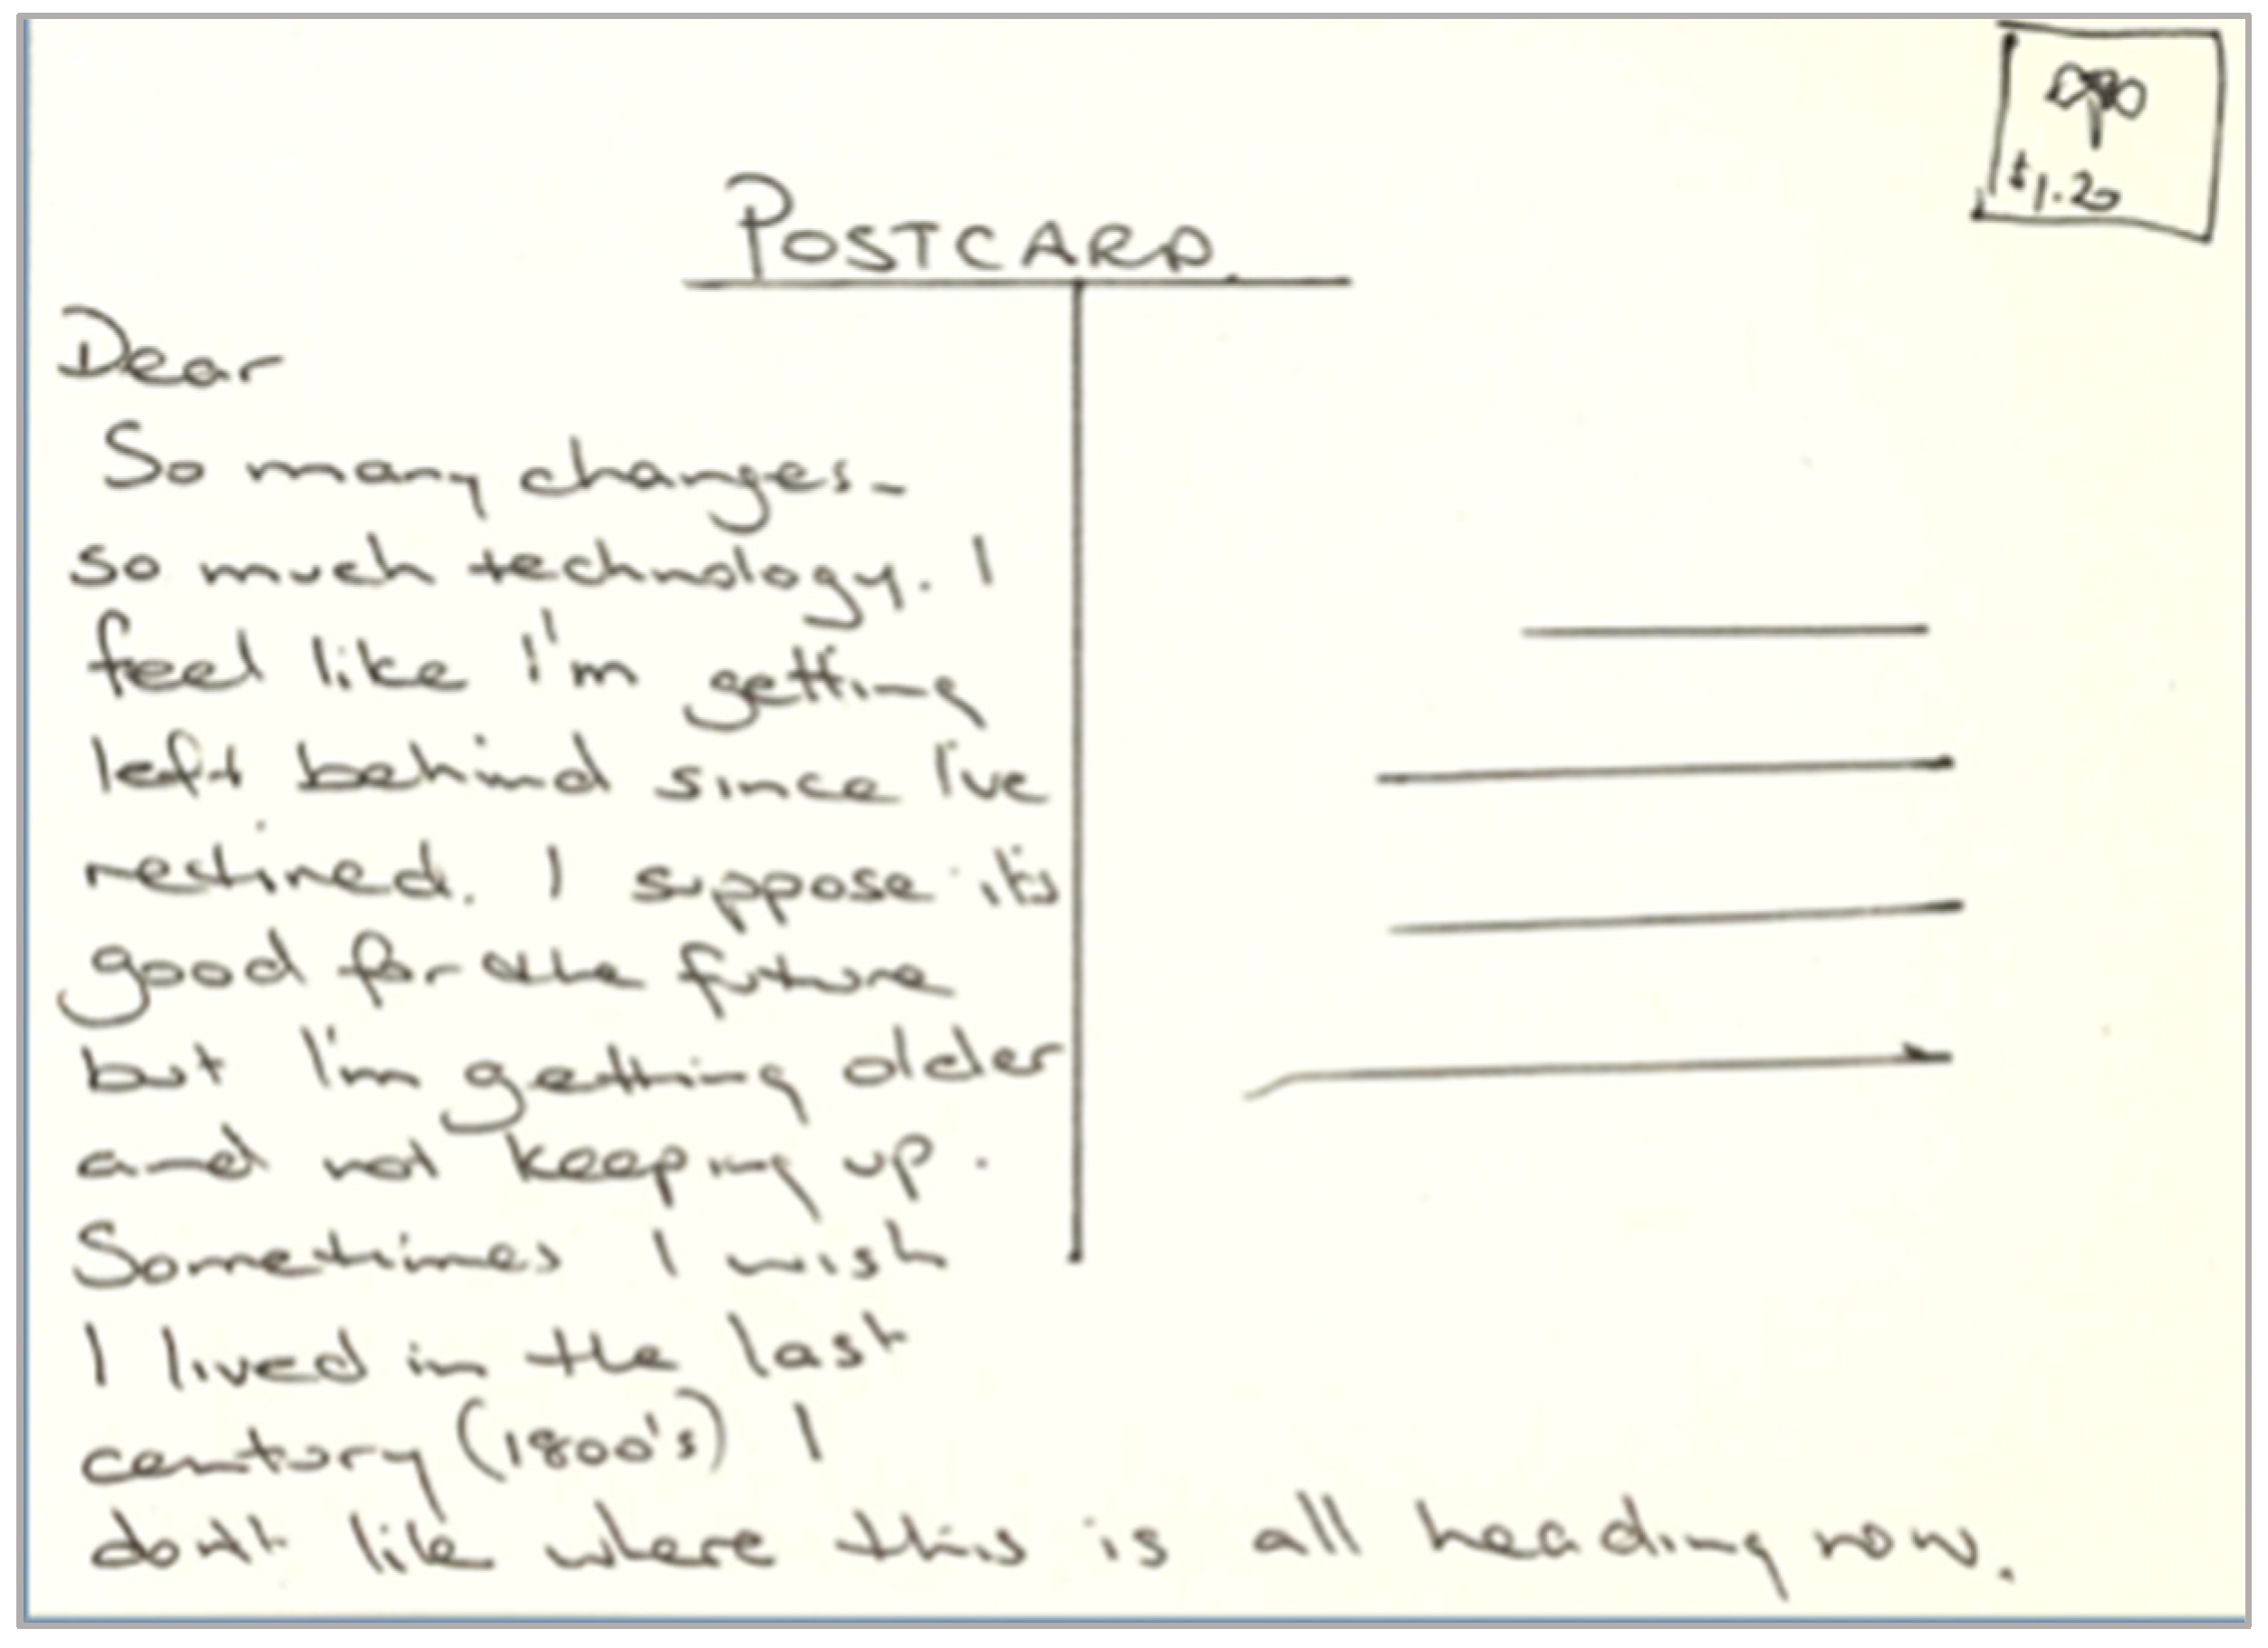 $1.20
POSTCARD.
Dear
So many changes-
so much technology. I
feel like I'm getting
left behind since I've
retired. I suppose it's
good for the future
but I'm getting older
and not keeping up.
Sometimes I wish
I lived in the last
century (1800's) I
don't like where this is all heading now.